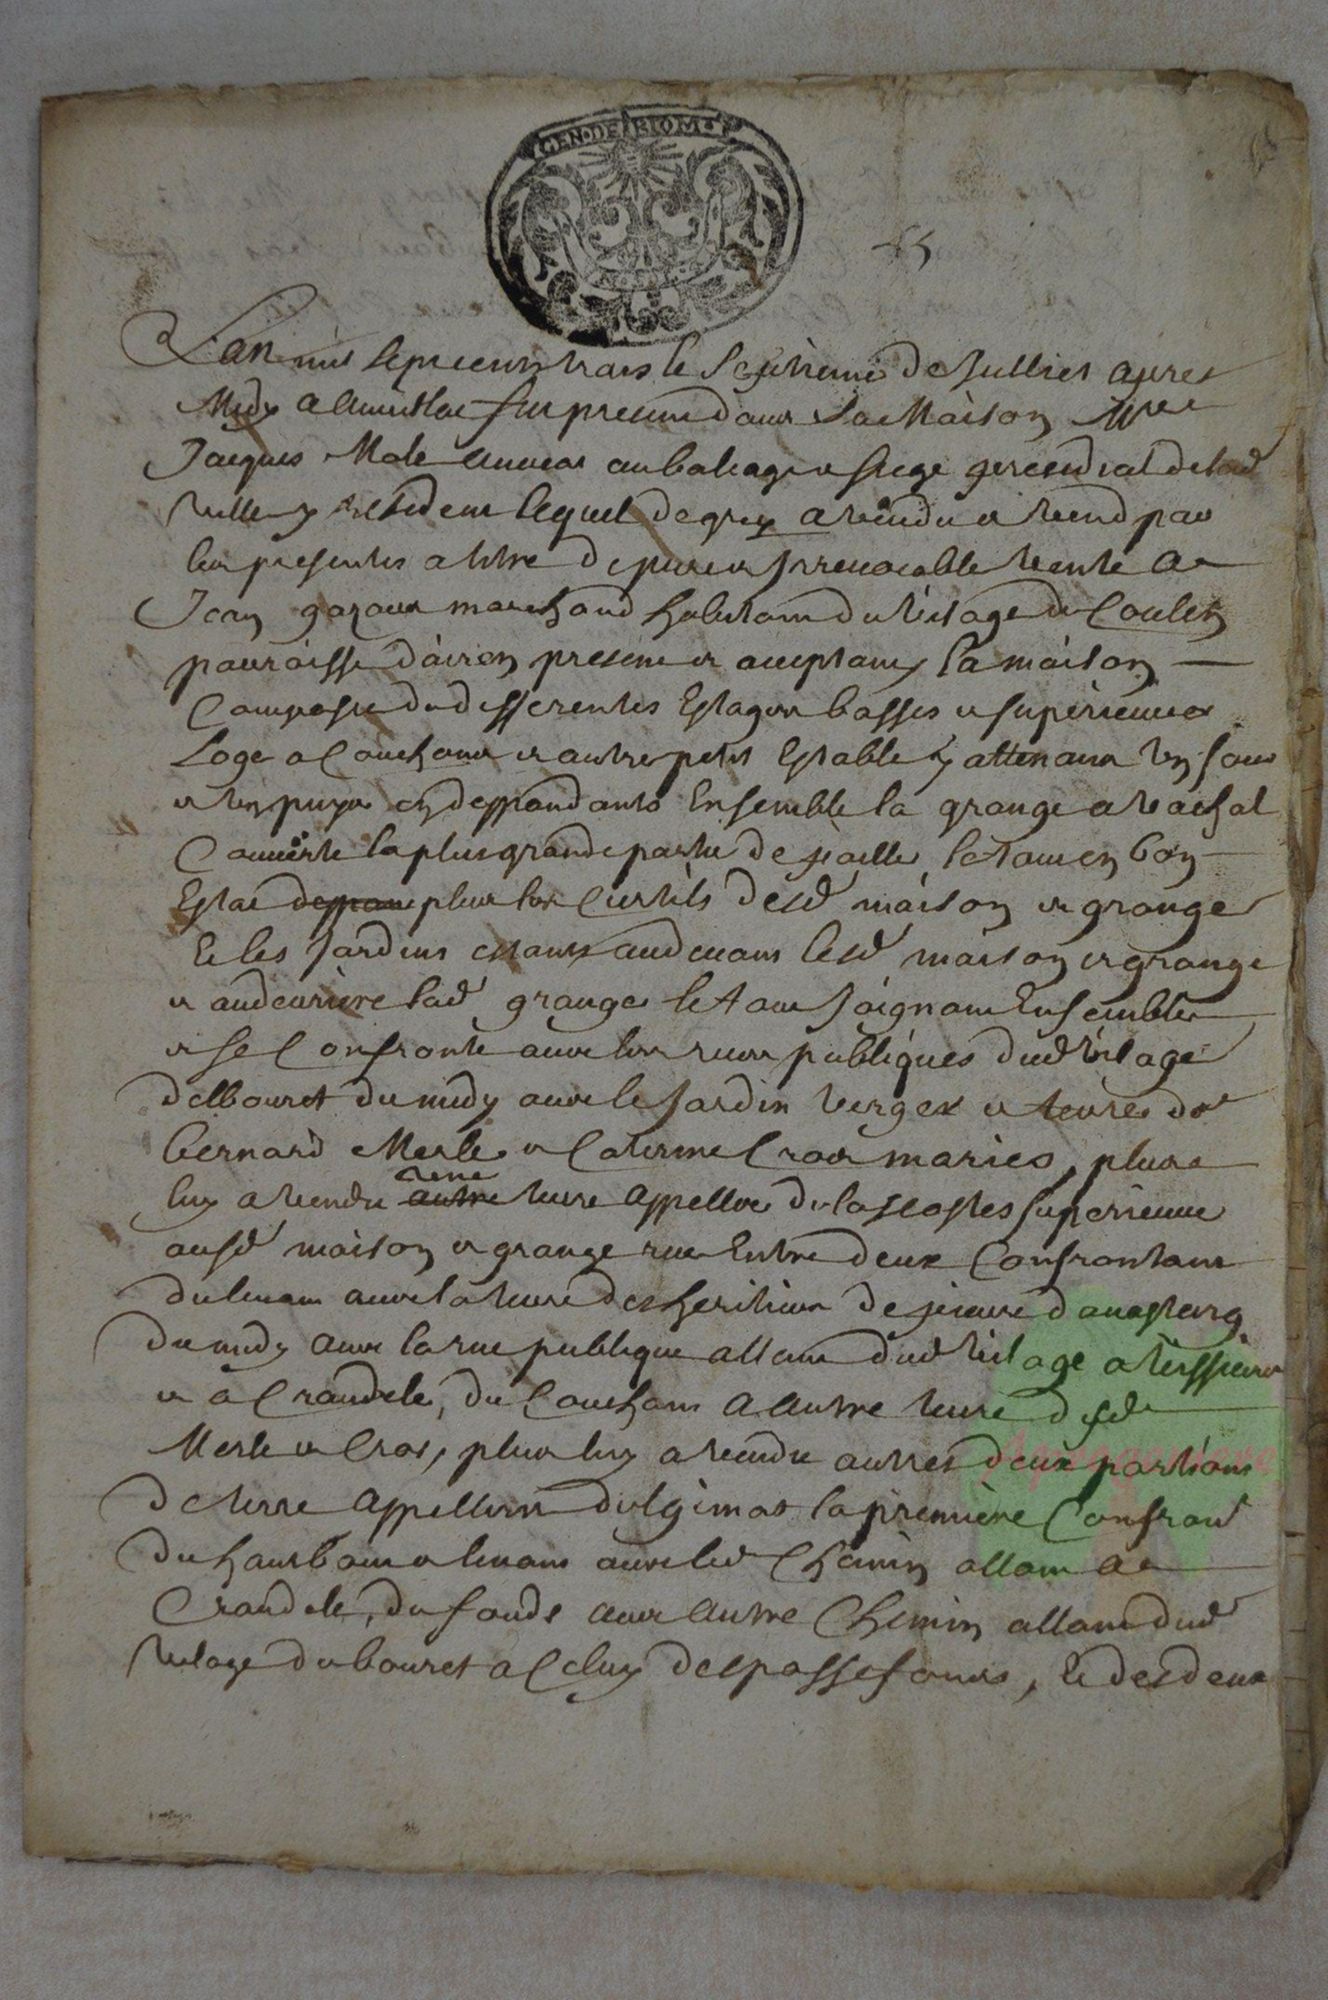 GEN·DE RIOM
Lan mil sept cent trois le septieme de Juillet apres
Midy a Aurillac fut present dans sa Maison Mre
Jacques Male advocat au baliage et siege presidial de lad
Ville y residant lequel de gre a vendu et vend par
les presentes a titre de pure et irrevocable vente a
Jean gazaux marchand habitant du vilage de Coulen
parroisse dairen present et acceptant la maison
Composee de differentes Estages basses et superieures
Loge a Couchons et autre petit Estable y attenant un four
et un puys en deppendants Ensemble la grange et vachal
Couverte la plus grande partie de paille le tout en bon
Estat plus les Curtils desd maison et grange
Et les Jardins estants audevant lesd maison et grange
et auderriere lad grange le tout Joignant Ensemble
et se Confronte avec les rues publiques dud vilage
delbouret du midy avec le Jardin verger et terres de
bernard Merle et Caterine Cros maries, plus
luy a vendu autre une terre appellee de las costes superieure
ausd maison et grange rue Entre deux Confrontant
du levant avec la terre des heritiers de pierre
du midy avec la rue publique allant dud vilage a
et a Crandele, du Couchant a autre terre desd
Merle et Cros, plus luy a vendu autres deux portions
de terre appellees delgimat la premiere Confront
du haut bout et levant avec led Chemin allant a
Crandele, du fonds avec autre Chemin allant dud
vilage du bouret a Celuy de passefons, Et des deux